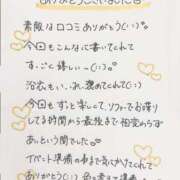 ありがとうございました
素敵な口コミありがとう(˙˙)♡
今回もこんなに書いてくれて
すっごく嬉しぃ〜(˙˙)♡
浴衣も いっ、れ 褒めてくれて♡
今回もずっと楽しくて、ソファーでお喋り
して3時間から最後まで相変わらず
あっという間でした♡
イベント準備の事まで気にかけてくれて
ありがとう(˙˙)